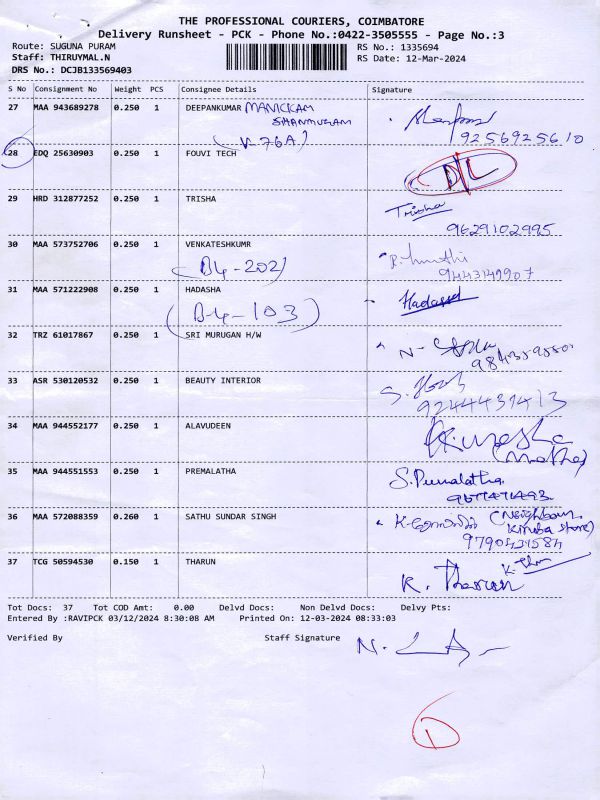 THE PROFESSIONAL COURIERS, COIMBATORE
Delivery Runsheet - PCK - Phone No.:0422-3505555 - Page No.:3
Route: SUGUNA PURAM RS No.: 1335694
Staff: THIRUYMAL.N RS Date: 12-Mar-2024
DRS No.: DCJB133569403
S No Consignment No Weight PCS Consignee Details Signature
27 MAA 943689278 0.250 1 DEEPANKUMAR MANICKAM
SHANMUGAM
(V-76A) 9256925610
28 EDQ 25630903 0.250 1 FOUVI TECH DL
29 HRD 312877252 0.250 1 TRISHA Trisha
9629102995
30 MAA 573752706 0.250 1 VENKATESHKUMR
(B4-202) 9443149907
31 MAA 571222908 0.250 1 HADASHA Hadassa
(B-4-103)
32 TRZ 61017867 0.250 1 SRI MURUGAN H/W
33 ASR 530120532 0.250 1 BEAUTY INTERIOR
34 MAA 944552177 0.250 1 ALAVUDEEN
35 MAA 944551553 0.250 1 PREMALATHA S.Pumalatha
36 MAA 572088359 0.260 1 SATHU SUNDAR SINGH (Neighbour
Kiruba store)
9790431584
37 TCG 50594530 0.150 1 THARUN
K. Tharun
Tot Docs: 37 Tot COD Amt: 0.00 Delvd Docs: Non Delvd Docs: Delvy Pts:
Entered By :RAVIPCK 03/12/2024 8:30:08 AM Printed On: 12-03-2024 08:33:03
Verified By Staff Signature
D